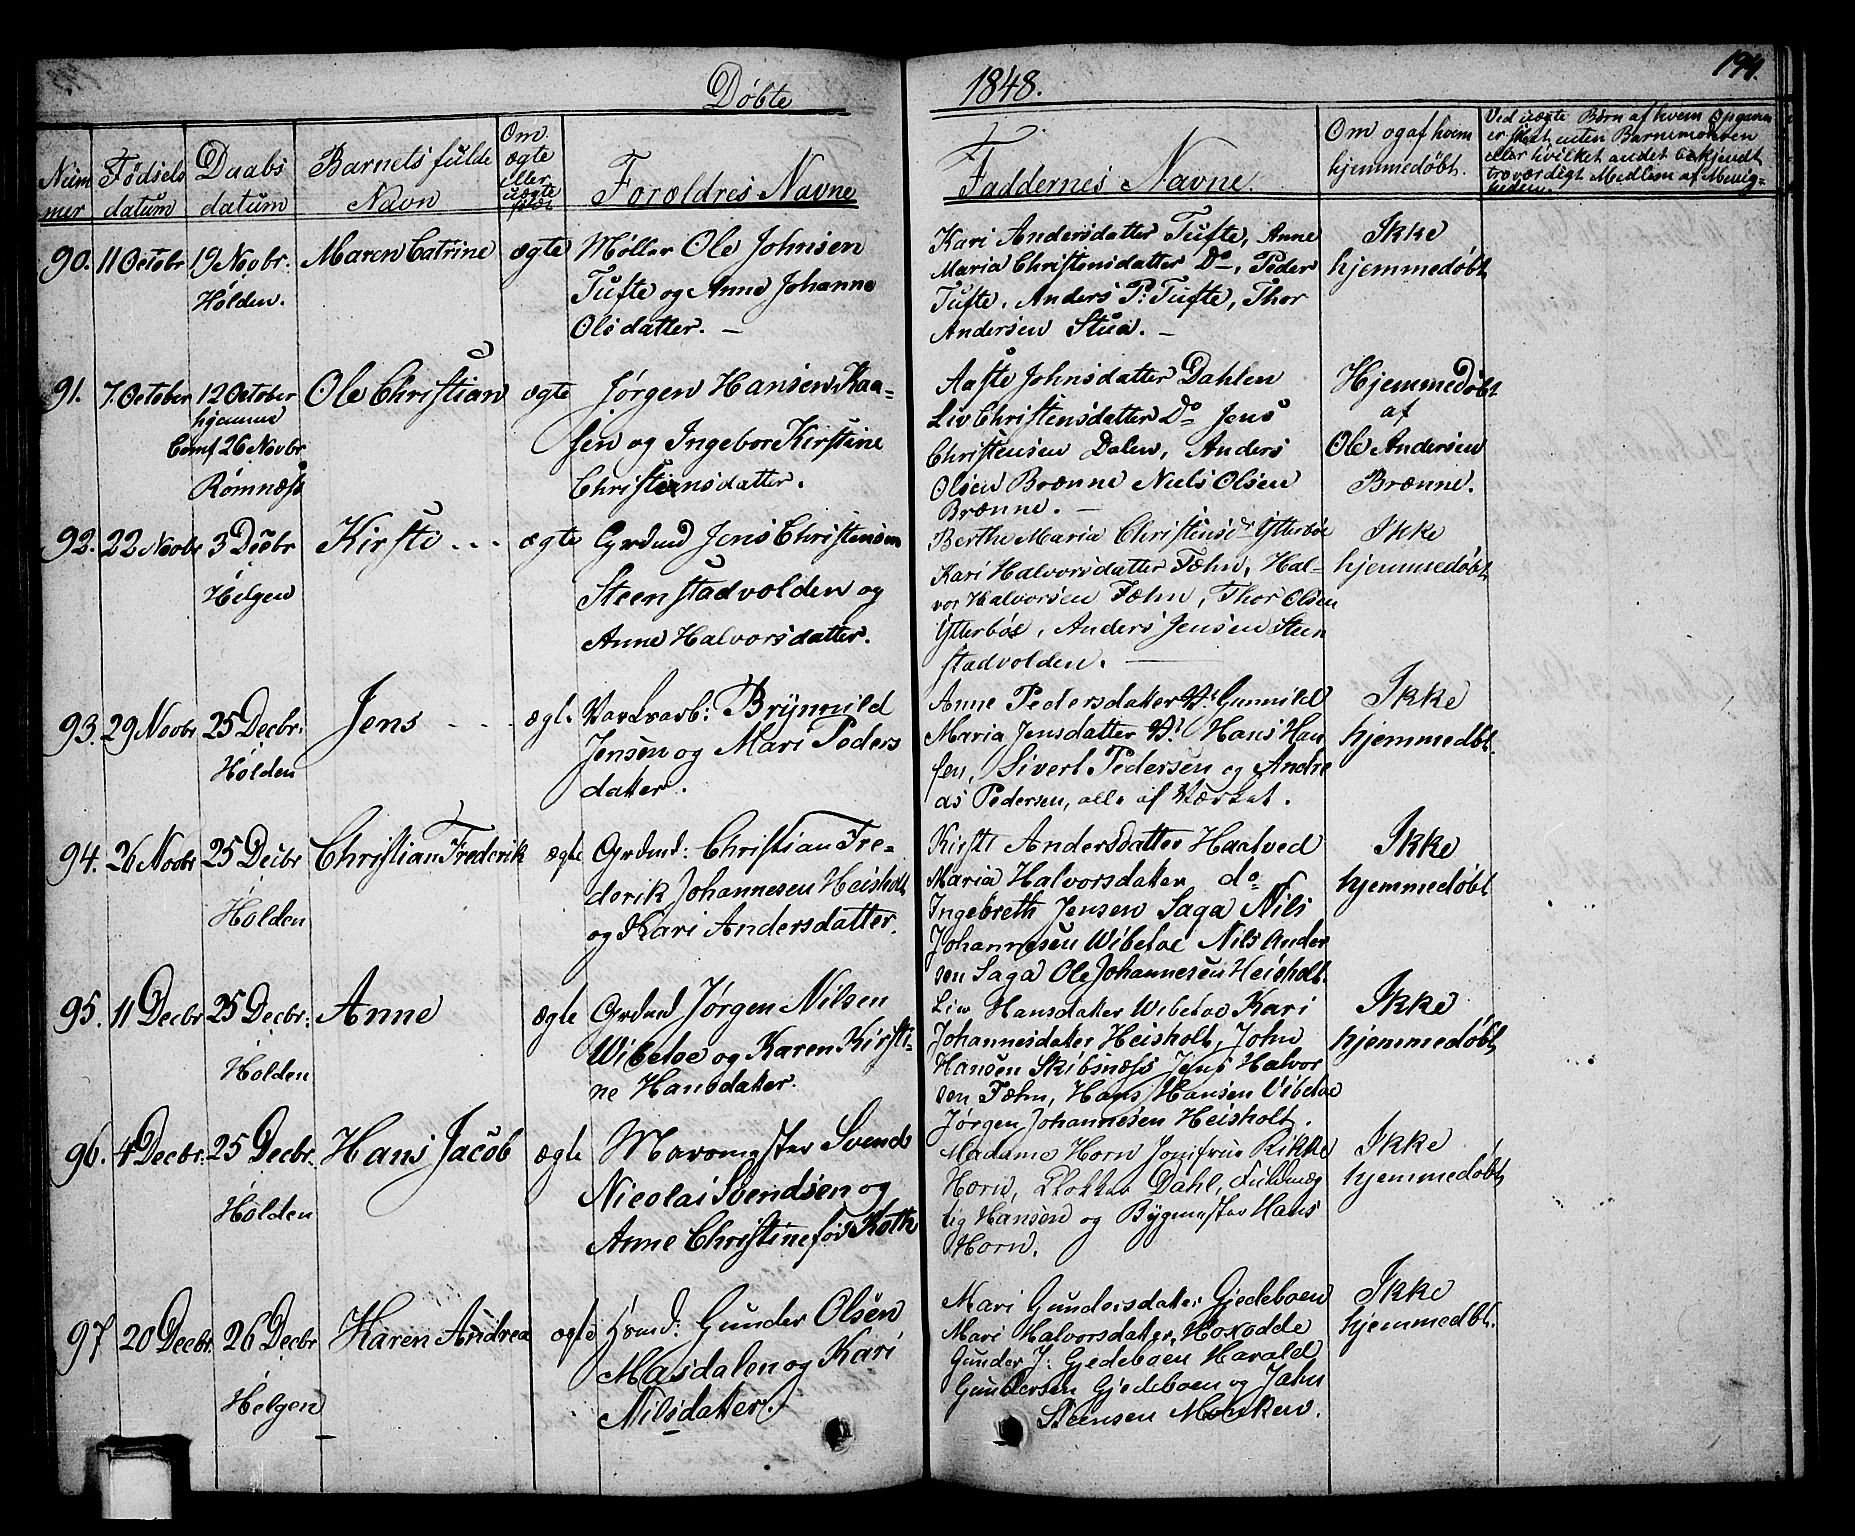 Døbte
1848.
194.
Num
mer
Fødsels
datum
Daabs
datum
Barnets fulde
Navn
Om
ægte
eller
uægte
Forældres Navne
Faddernes Navne.
Om og af hvem
hjemmedøbt.
Ved uægte Børn af hvem Opgaven
er skeet, enten Barnemoderen
eller hvilket andet bekjendt
troværdigt Medlem af Menig-
heden.
90. 11 Octobr 19 Novbr: Maren Catrine ægte Møller Ole Johnsen
Holden. Tufte og Anne Johanne
Olsdatter. —
Kari Andersdatter Tufte, Anne
Maria Christensdatter Do, Peder
Tufte, Anders P: Tufte, Thor
Andersen Stua. —
Ikke
hjemmedøbt
91. 7 October 12 October Ole Christian ægte Jørgen Hansen Kaa-
hjemme
Comf 26 Novbr sen og Ingebor Kirstine
Romnæss Christiensdatter.
Aaste Johnsdatter Dahlen
Liv Christensdatter Do Jens
Christensen Dalen, Anders
Olsen Brænne Niels Olsen
Brænne. —
Hjemmedøbt
af
Ole Andersen
Brænne.
92. 22 Novbr 3 Decbr Kirste - - - ægte Grdmd Jens Christensen
Helgen Steenstadvolden og
Anne Halvorsdatter.
Berthe Maria Christensdr Ytterbøe
Kari Halvorsdatter Fæhn, Hal-
vor Halvorsen Fæhn, Thor Olsen
Ytterbøe, Anders Jensen Steen
stadvolden. —
Ikke
hjemmedøbt
93. 29 Novbr 25 Decbr: Jens - - - ægte Værksarb: Brynnild
Holden Jensen og Mari Peders
datter.
Anne Pedersdatter V: Gunnild
Maria Jensdatter V: Hans Han
sen, Sivert Pedersen og Andre
as Pedersen, alle af Værket.
Ikke
hjemmedøbt.
94. 26 Novbr 25 Decbr Christian Frederik ægte Grdmd: Christian Fre-
Holden derik Johannesen Heisholt
og Kari Andersdatter.
Kirsti Andersdatter Haatved
Maria Halvorsdatter do
Ingebreth Jensen Saga Nils
Johannesen Wibetoe Nils Ander
sen Saga Ole Johannesen Heisholt.
Ikke
hjemmedøbt
95. 11 Decbr 25 Decbr: Anne ægte Grdmd Jørgen Nilsen
Holden Wibetoe og Karen Kirsti-
ne Hansdatter.
Liv Hansdatter Wibetoe Kari
Johannesdatter Heisholt, John
Hansen Skibsnæss Jens Halvor
sen Fæhn, Hans Hansen Vibetoe
Jørgen Johannesen Heisholt.
Ikke
hjemmedøbt
96. 4 Decbr: 25 Decbr: Hans Jacob ægte Masomester Svend
Holden Nicolai Svendsen og
Anne Christine før Koth
Madame Horn Jomfrue Rikke
Horn, Dokter Dahl, Fuldmæg
tig Hansen og Bygmester Hans
Horn.
Ikke
hjemmedøbt
97 20 Decbr. 26 Decbr Karen Andrea ægte Hsmd: Gunder Olsen
Helgen Masdalen og Kari
Nilsdatter.
Mari Gundersdatter Gjedeboen
Mari Halvorsdatter Hoxodde
Gunder J: Gjedeboen Harald
Gundersen Gjedeboen og Jahn
Steensen Moeken.
Ikke
hjemmedøbt.